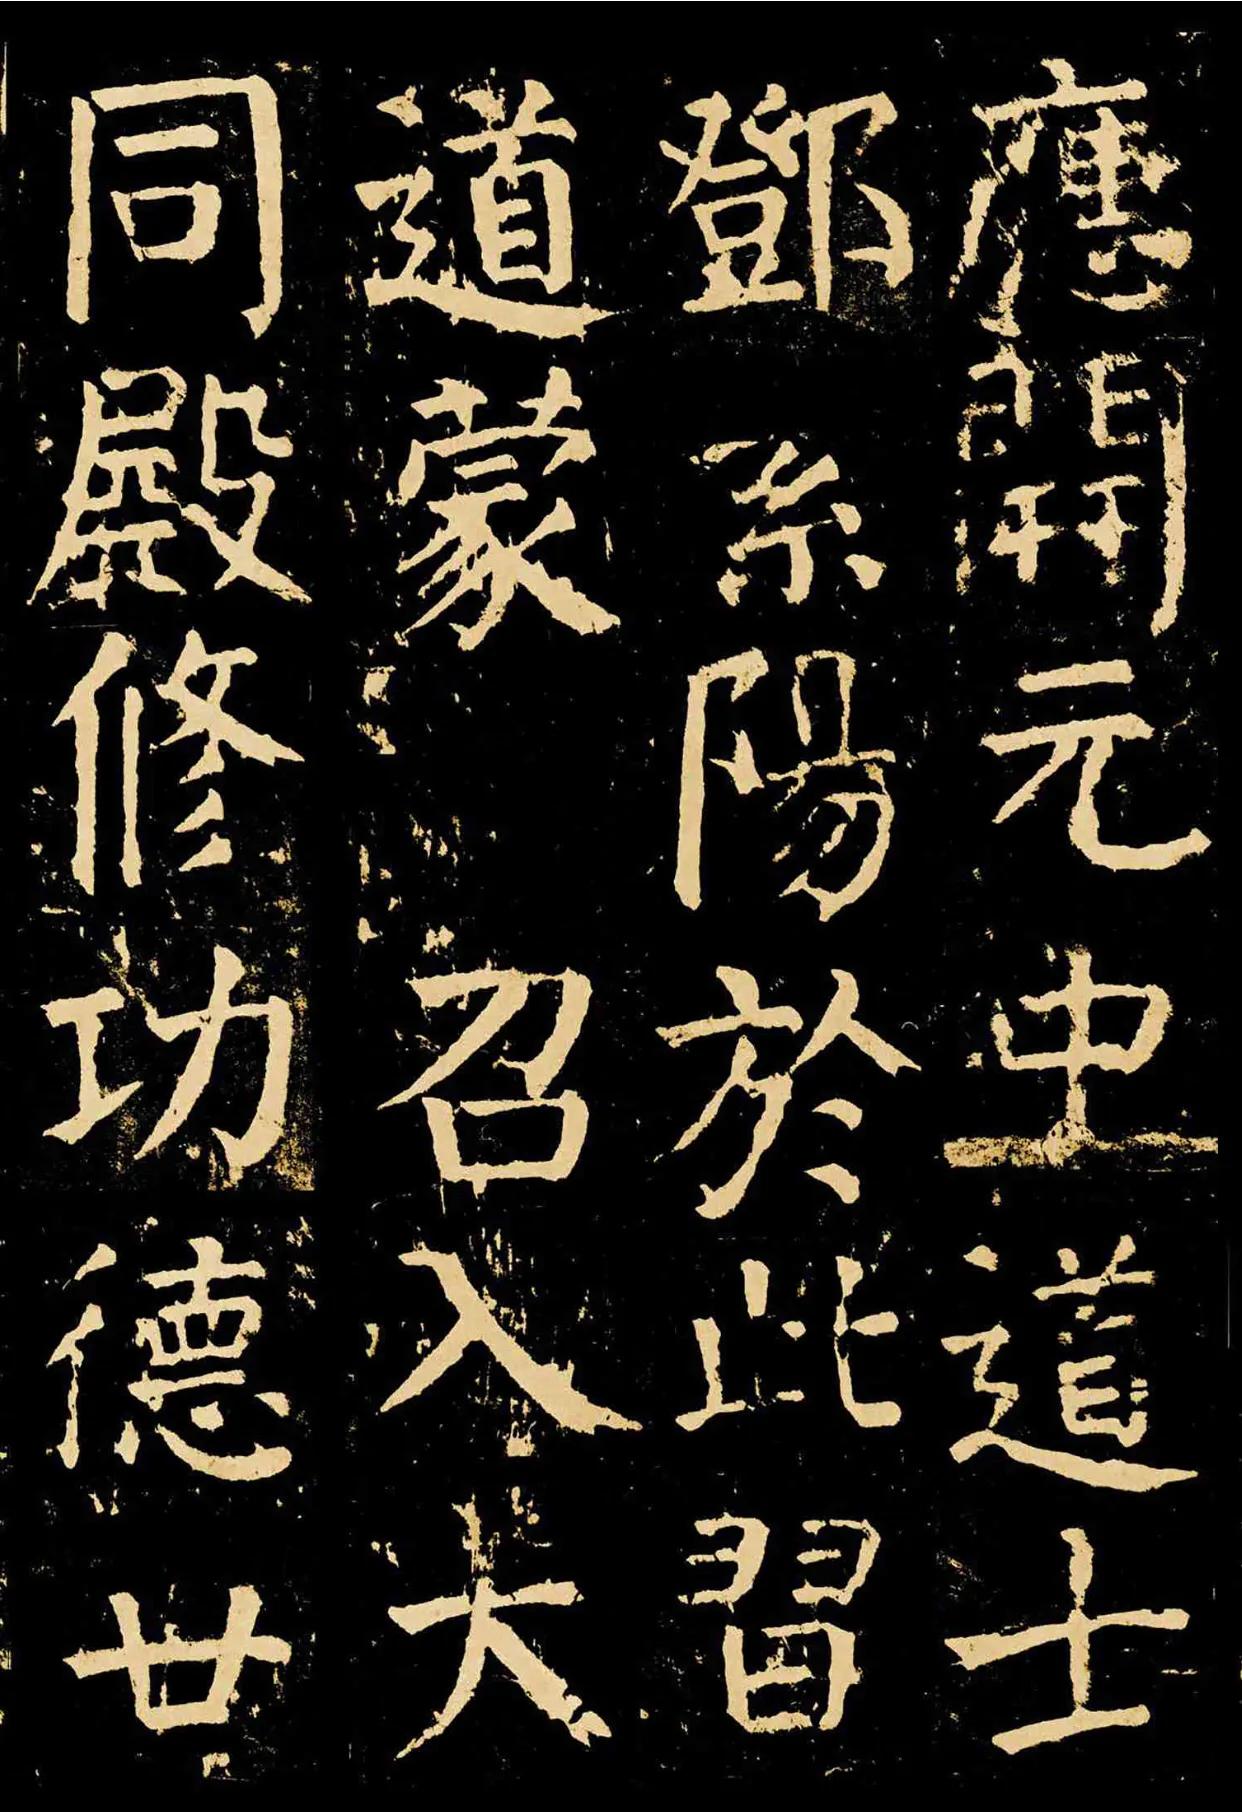 唐開元中道士
鄧紫陽於此習
道蒙召入大
同殿修功德廿